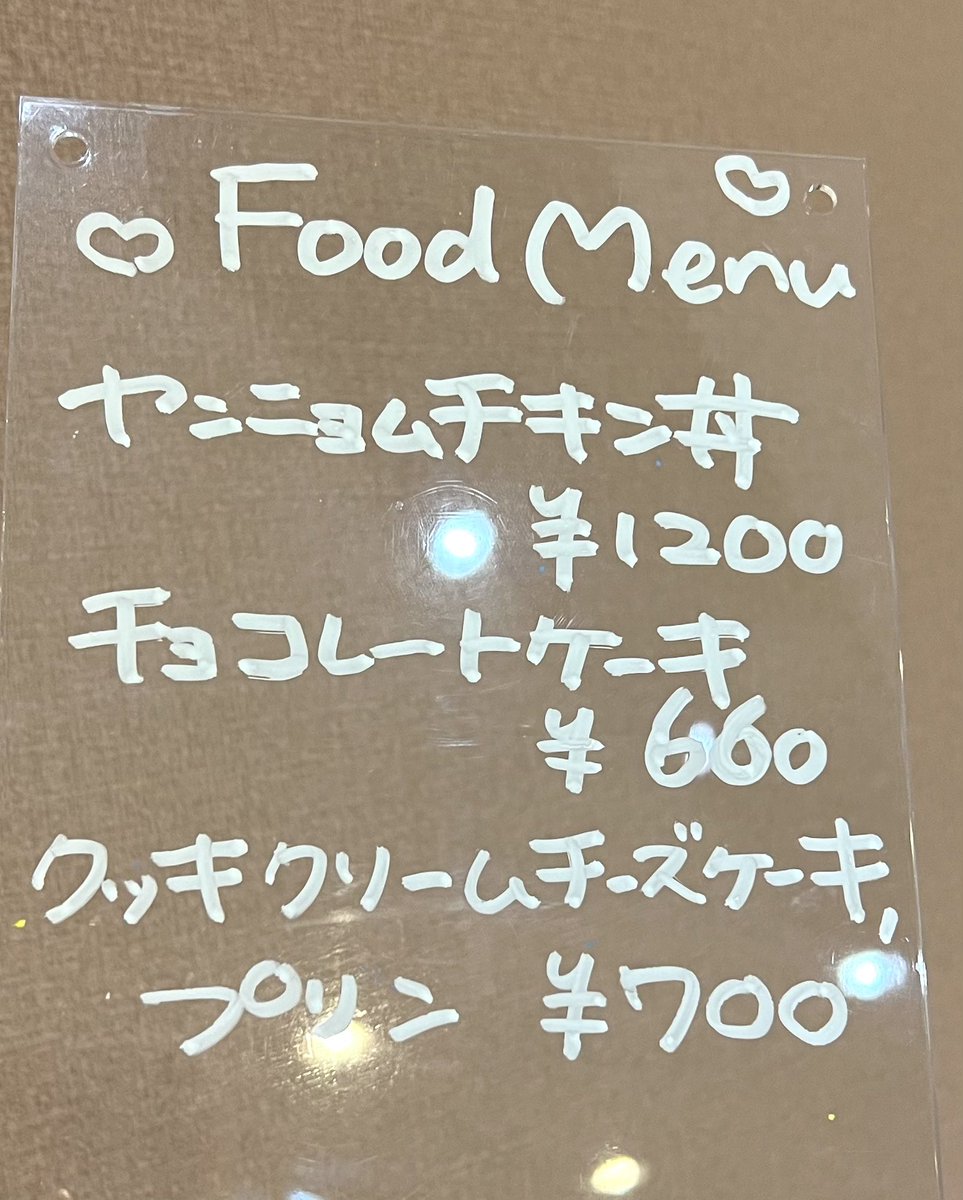 ♡ Food Menu ♡
ヤンニョムチキン丼
¥1200
チョコレートケーキ
¥660
クッキクリームチーズケーキ,
プリン ¥700